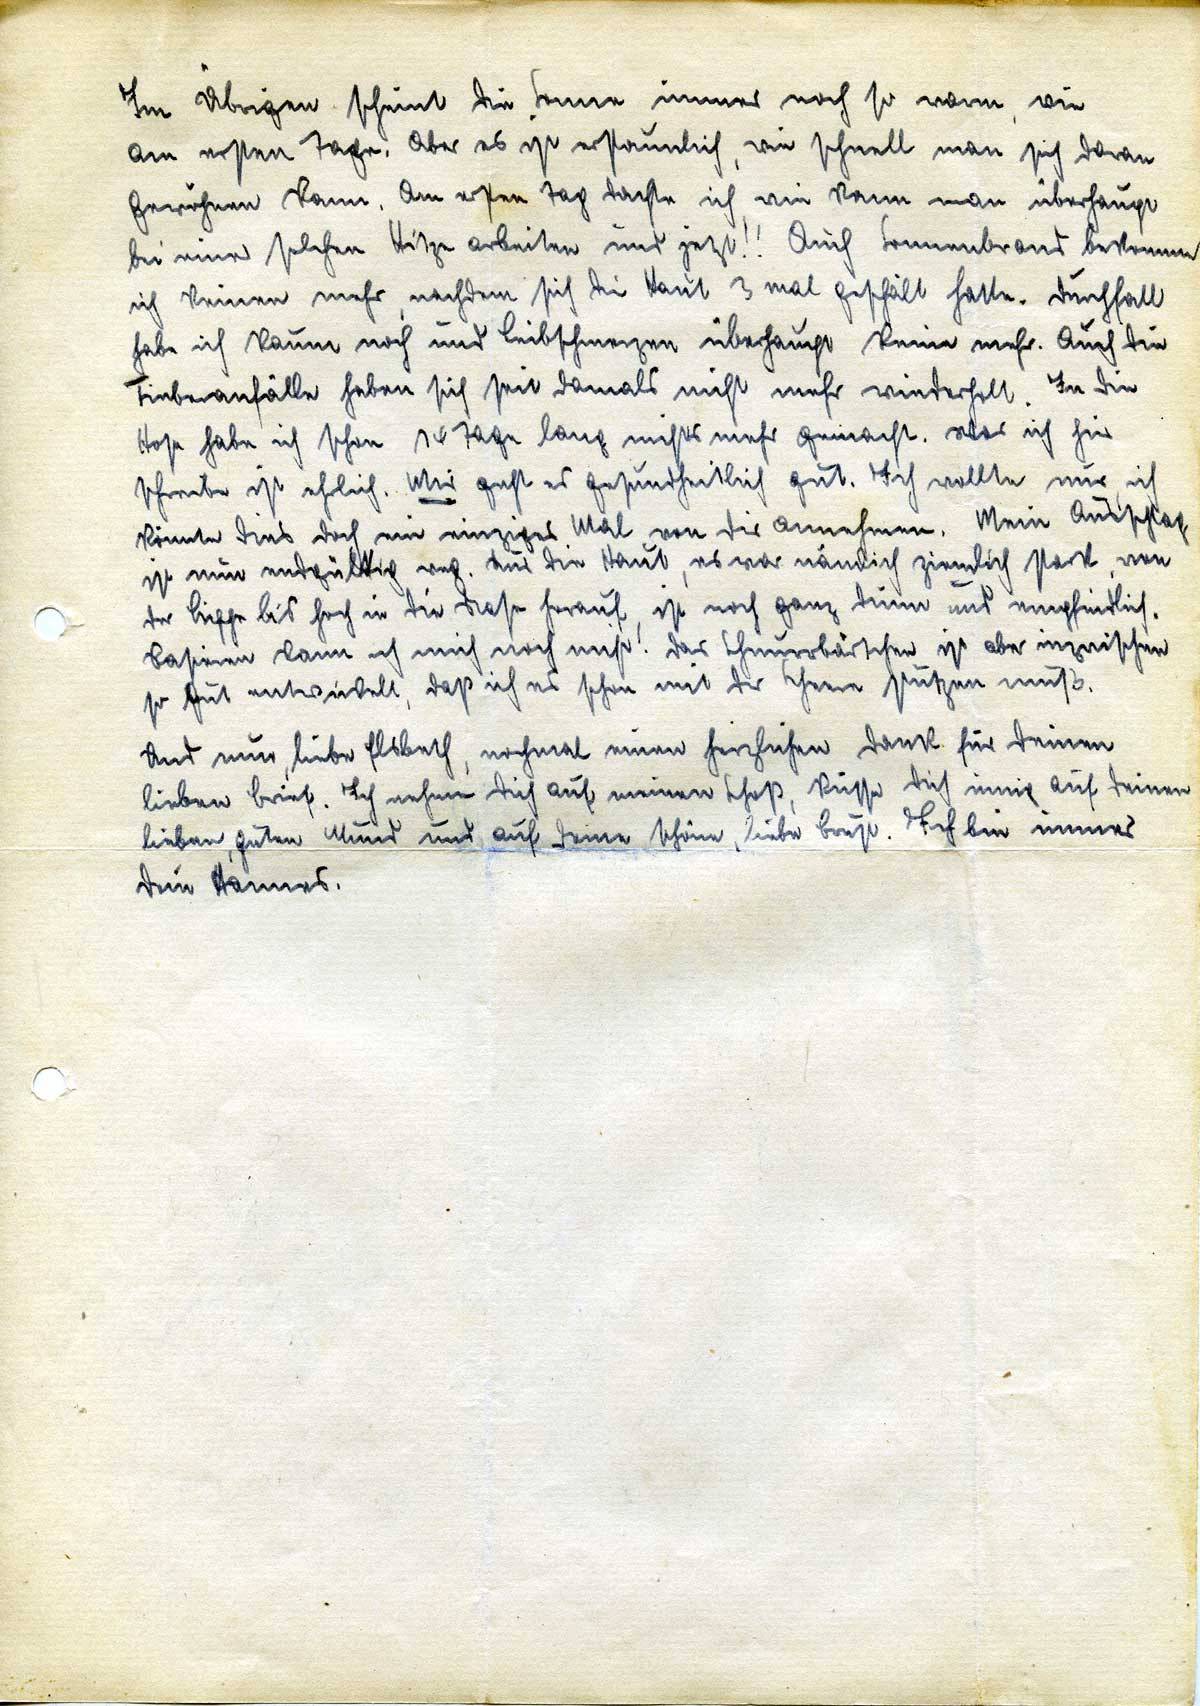 Im Übrigen scheint die Sonne immer noch so warm, wie
am ersten Tage. Aber es ist erstaunlich, wie schnell man sich daran
gewöhnen kann. Am ersten Tag dachte ich wie kann man überhaupt
bei einer solchen Hitze arbeiten und jetzt!! Auch Sonnenbrand bekomme
ich keinen mehr, nachdem sich die Haut 3 mal geschält hatte. Durchfall
habe ich kaum noch und Leibschmerzen überhaupt keine mehr. Auch die
Fieberanfälle haben sich seit damals nicht mehr wiederholt. In die
Hose habe ich schon 14 Tage lang nichts mehr gemacht. Was ich hier
schreibe ist ehrlich. Mir geht es gesundheitlich gut. Ich wollte nur, ich
könnte dies doch ein einziges Mal von dir annehmen. Mein Ausschlag
ist nun endgültig weg. Nur die Haut, es war nämlich ziemlich stark, von
der Lippe bis hoch in die Nase herauf, ist noch ganz dünn und empfindlich.
Rasieren kann ich mich noch nicht! Das Schnurrbärtchen ist aber inzwischen
so gut entwickelt, daß ich es schon mit der Schere stutzen muß.
Und nun, liebe Elsbeth, nochmal einen herzlichen Dank für Deinen
lieben Brief. Ich nehme Dich auf meinen Schoß, küsse Dich innig auf Deinen
lieben, guten Mund und auf Deine schöne, liebe Brust. Ich bin immer
Dein Hannes.